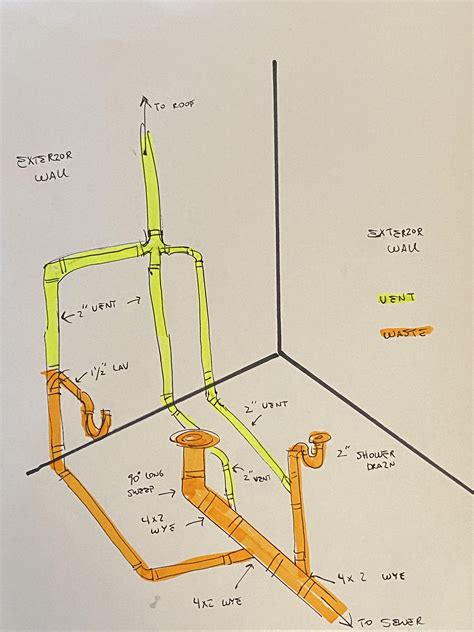 TO ROOF
EXTERIOR
WALL
EXTERIOR
WALL
VENT
WASTE
2" VENT
1 1/2" LAV
2" VENT
2" SHOWER
DRAIN
90° LONG
SWEEP
2" VENT
4x2
WYE
4x2 WYE
4x2 WYE
TO SEWER